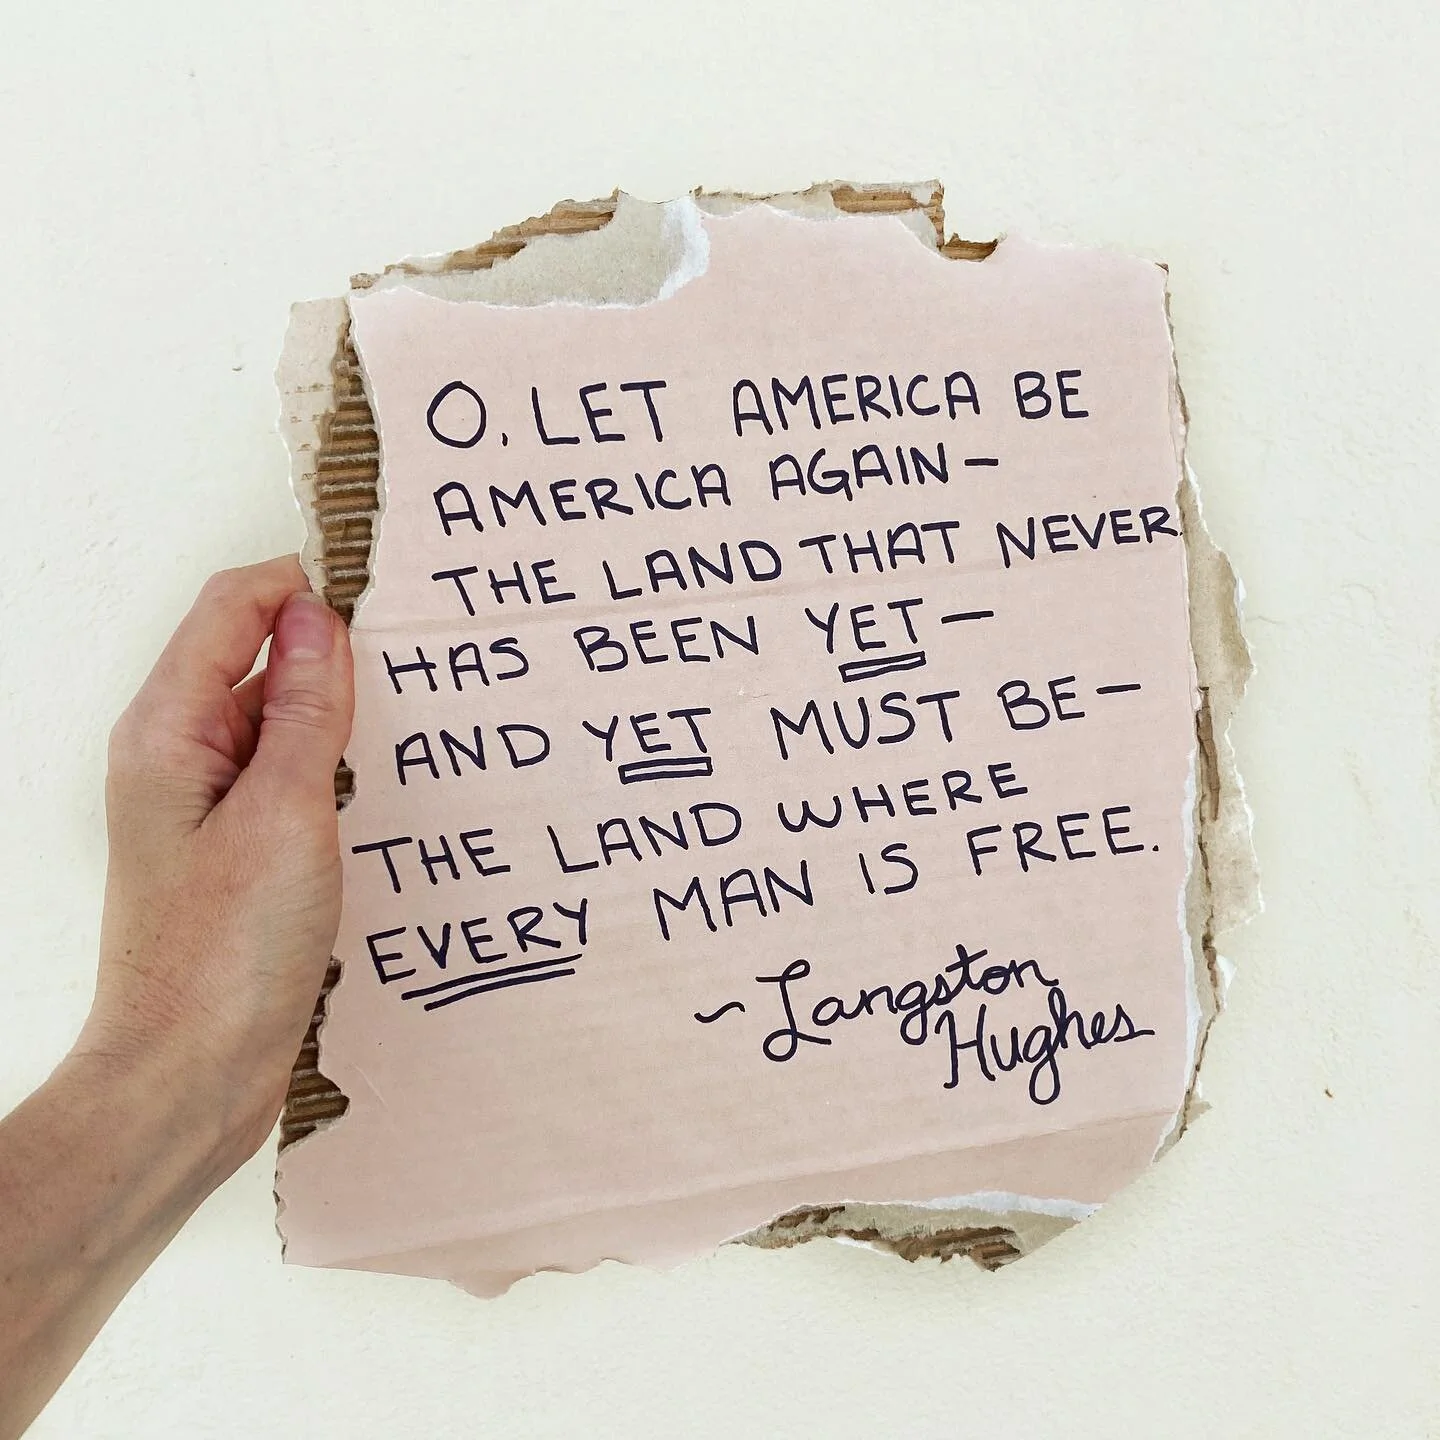 O, LET AMERICA BE
AMERICA AGAIN-
THE LAND THAT NEVER
HAS BEEN YET-
AND YET MUST BE-
THE LAND WHERE
EVERY MAN IS FREE.
~ Langston
Hughes